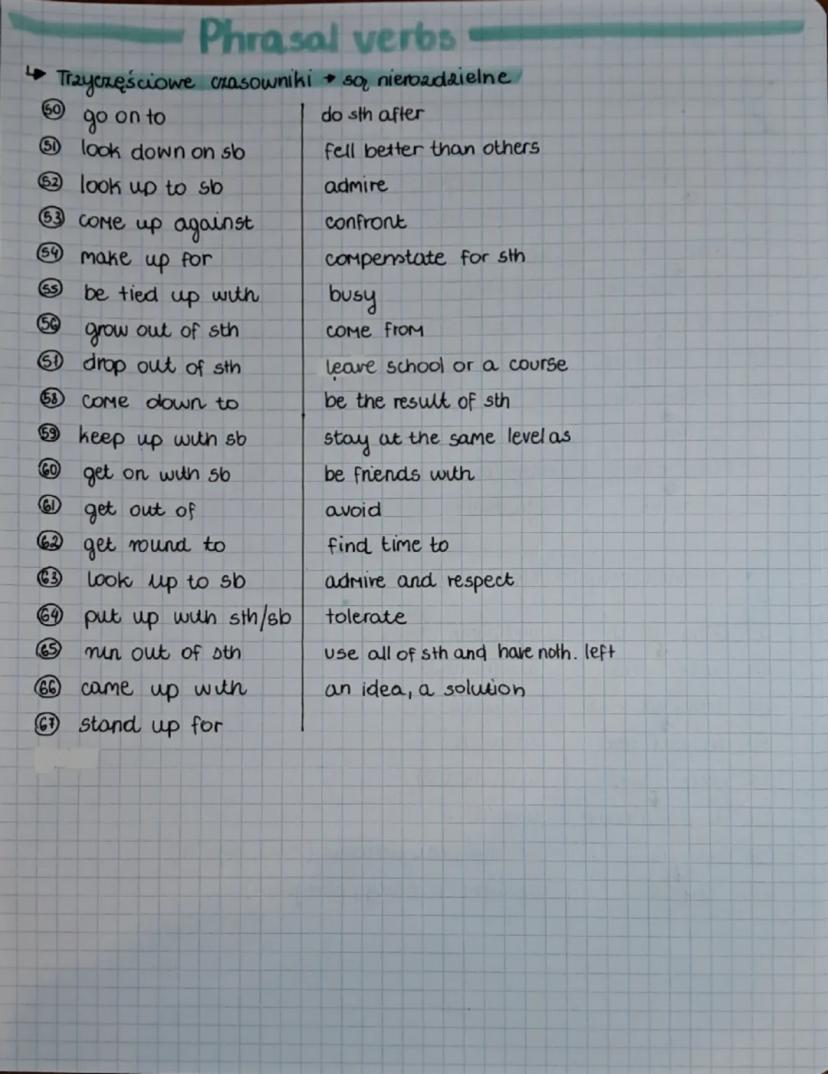 Phrasal verbs
↳ Trzyczęściowe czasowniki → są nierozdzielne
50 go on to do sth after
51 look down on sb fell better than others
52 look up to sb admire
53 come up against confront
54 make up for compenstate for sth
55 be tied up with busy
56 grow out of sth come from
57 drop out of sth leave school or a course
58 come down to be the result of sth
59 keep up with sb stay at the same level as
60 get on with sb be friends with
61 get out of avoid
62 get round to find time to
63 look up to sb admire and respect
64 put up with sth/sb tolerate
65 run out of sth use all of sth and have noth. left
66 came up with an idea, a solution
67 stand up for